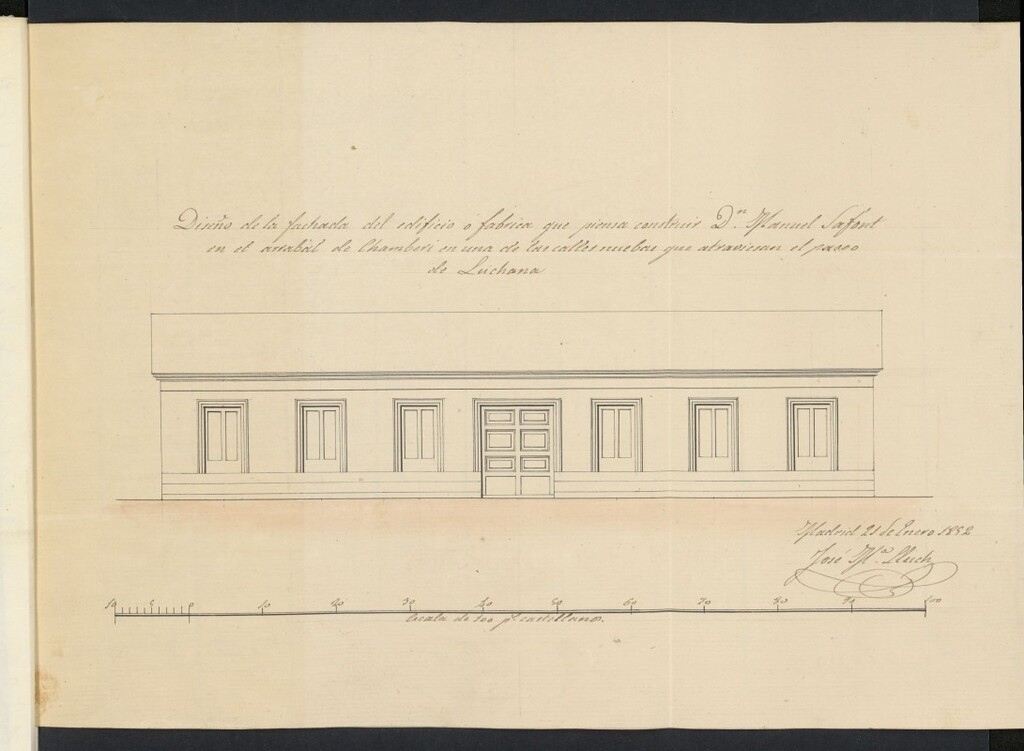 Diseño de la fachada del edificio ó fabrica que piensa construir D.ⁿ Manuel Saffont
en el arrabál de Chamberí en una de las calles nuebas que atraviesan el paseo
de Luchana
Madrid 21 de Enero 1852
José M.ª Lluch
10 5 0 10 20 30 40 50 60 70 80 90 100
Escala de 100 p.s castellanos.